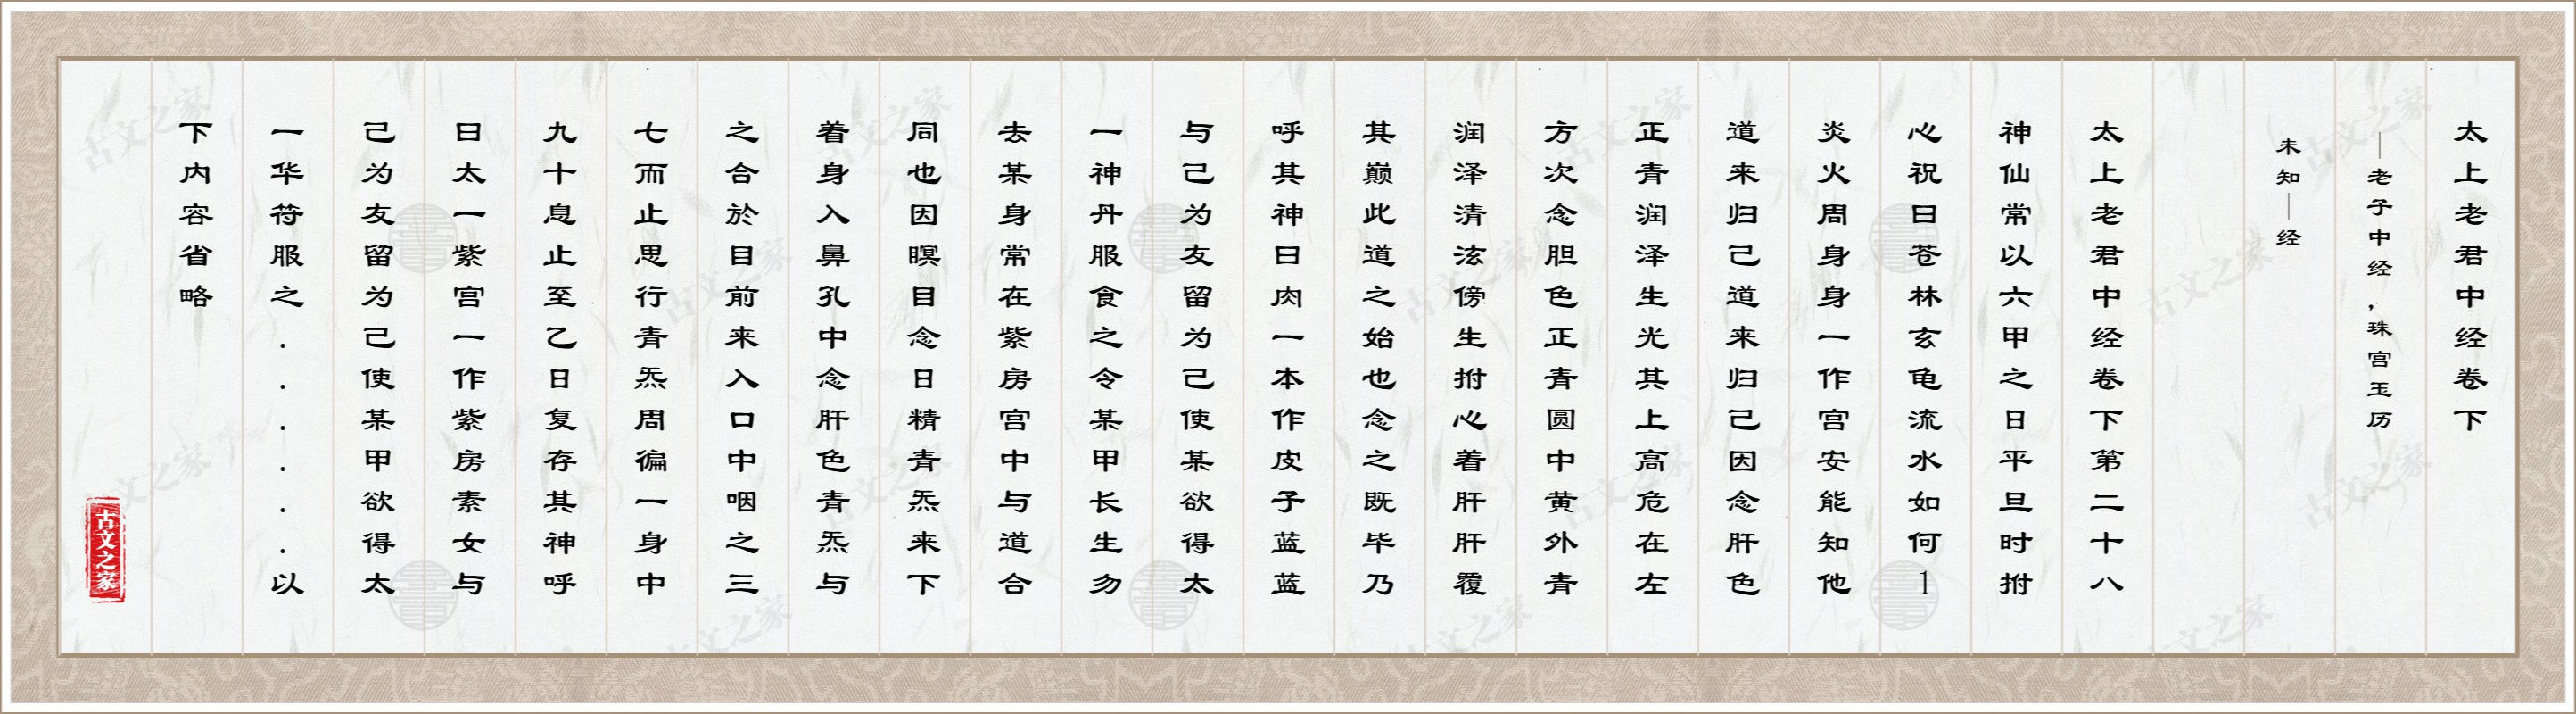 太上老君中经卷下
—老子中经，珠宫玉历
未知—经
太上老君中经卷下第二十八
神仙常以六甲之日平旦时拊
心祝曰苍林玄龟流水如何1
炎火周身身一作宫安能知他
道来归己道来归己因念肝色
正青润泽生光其上高危在左
方次念胆色正青圆中黄外青
润泽清泫傍生拊心着肝肝覆
其巅此道之始也念之既毕乃
呼其神曰肉一本作皮子蓝蓝
与己为友留为己使某欲得太
一神丹服食之令某甲长生勿
去某身常在紫房宫中与道合
同也因瞑目念日精青炁来下
着身入鼻孔中念肝色青炁与
之合於目前来入口中咽之三
七而止思行青炁周徧一身中
九十息止至乙日复存其神呼
曰太一紫宫一作紫房素女与
己为友留为己使某甲欲得太
一华符服之......以
下内容省略
古文之家